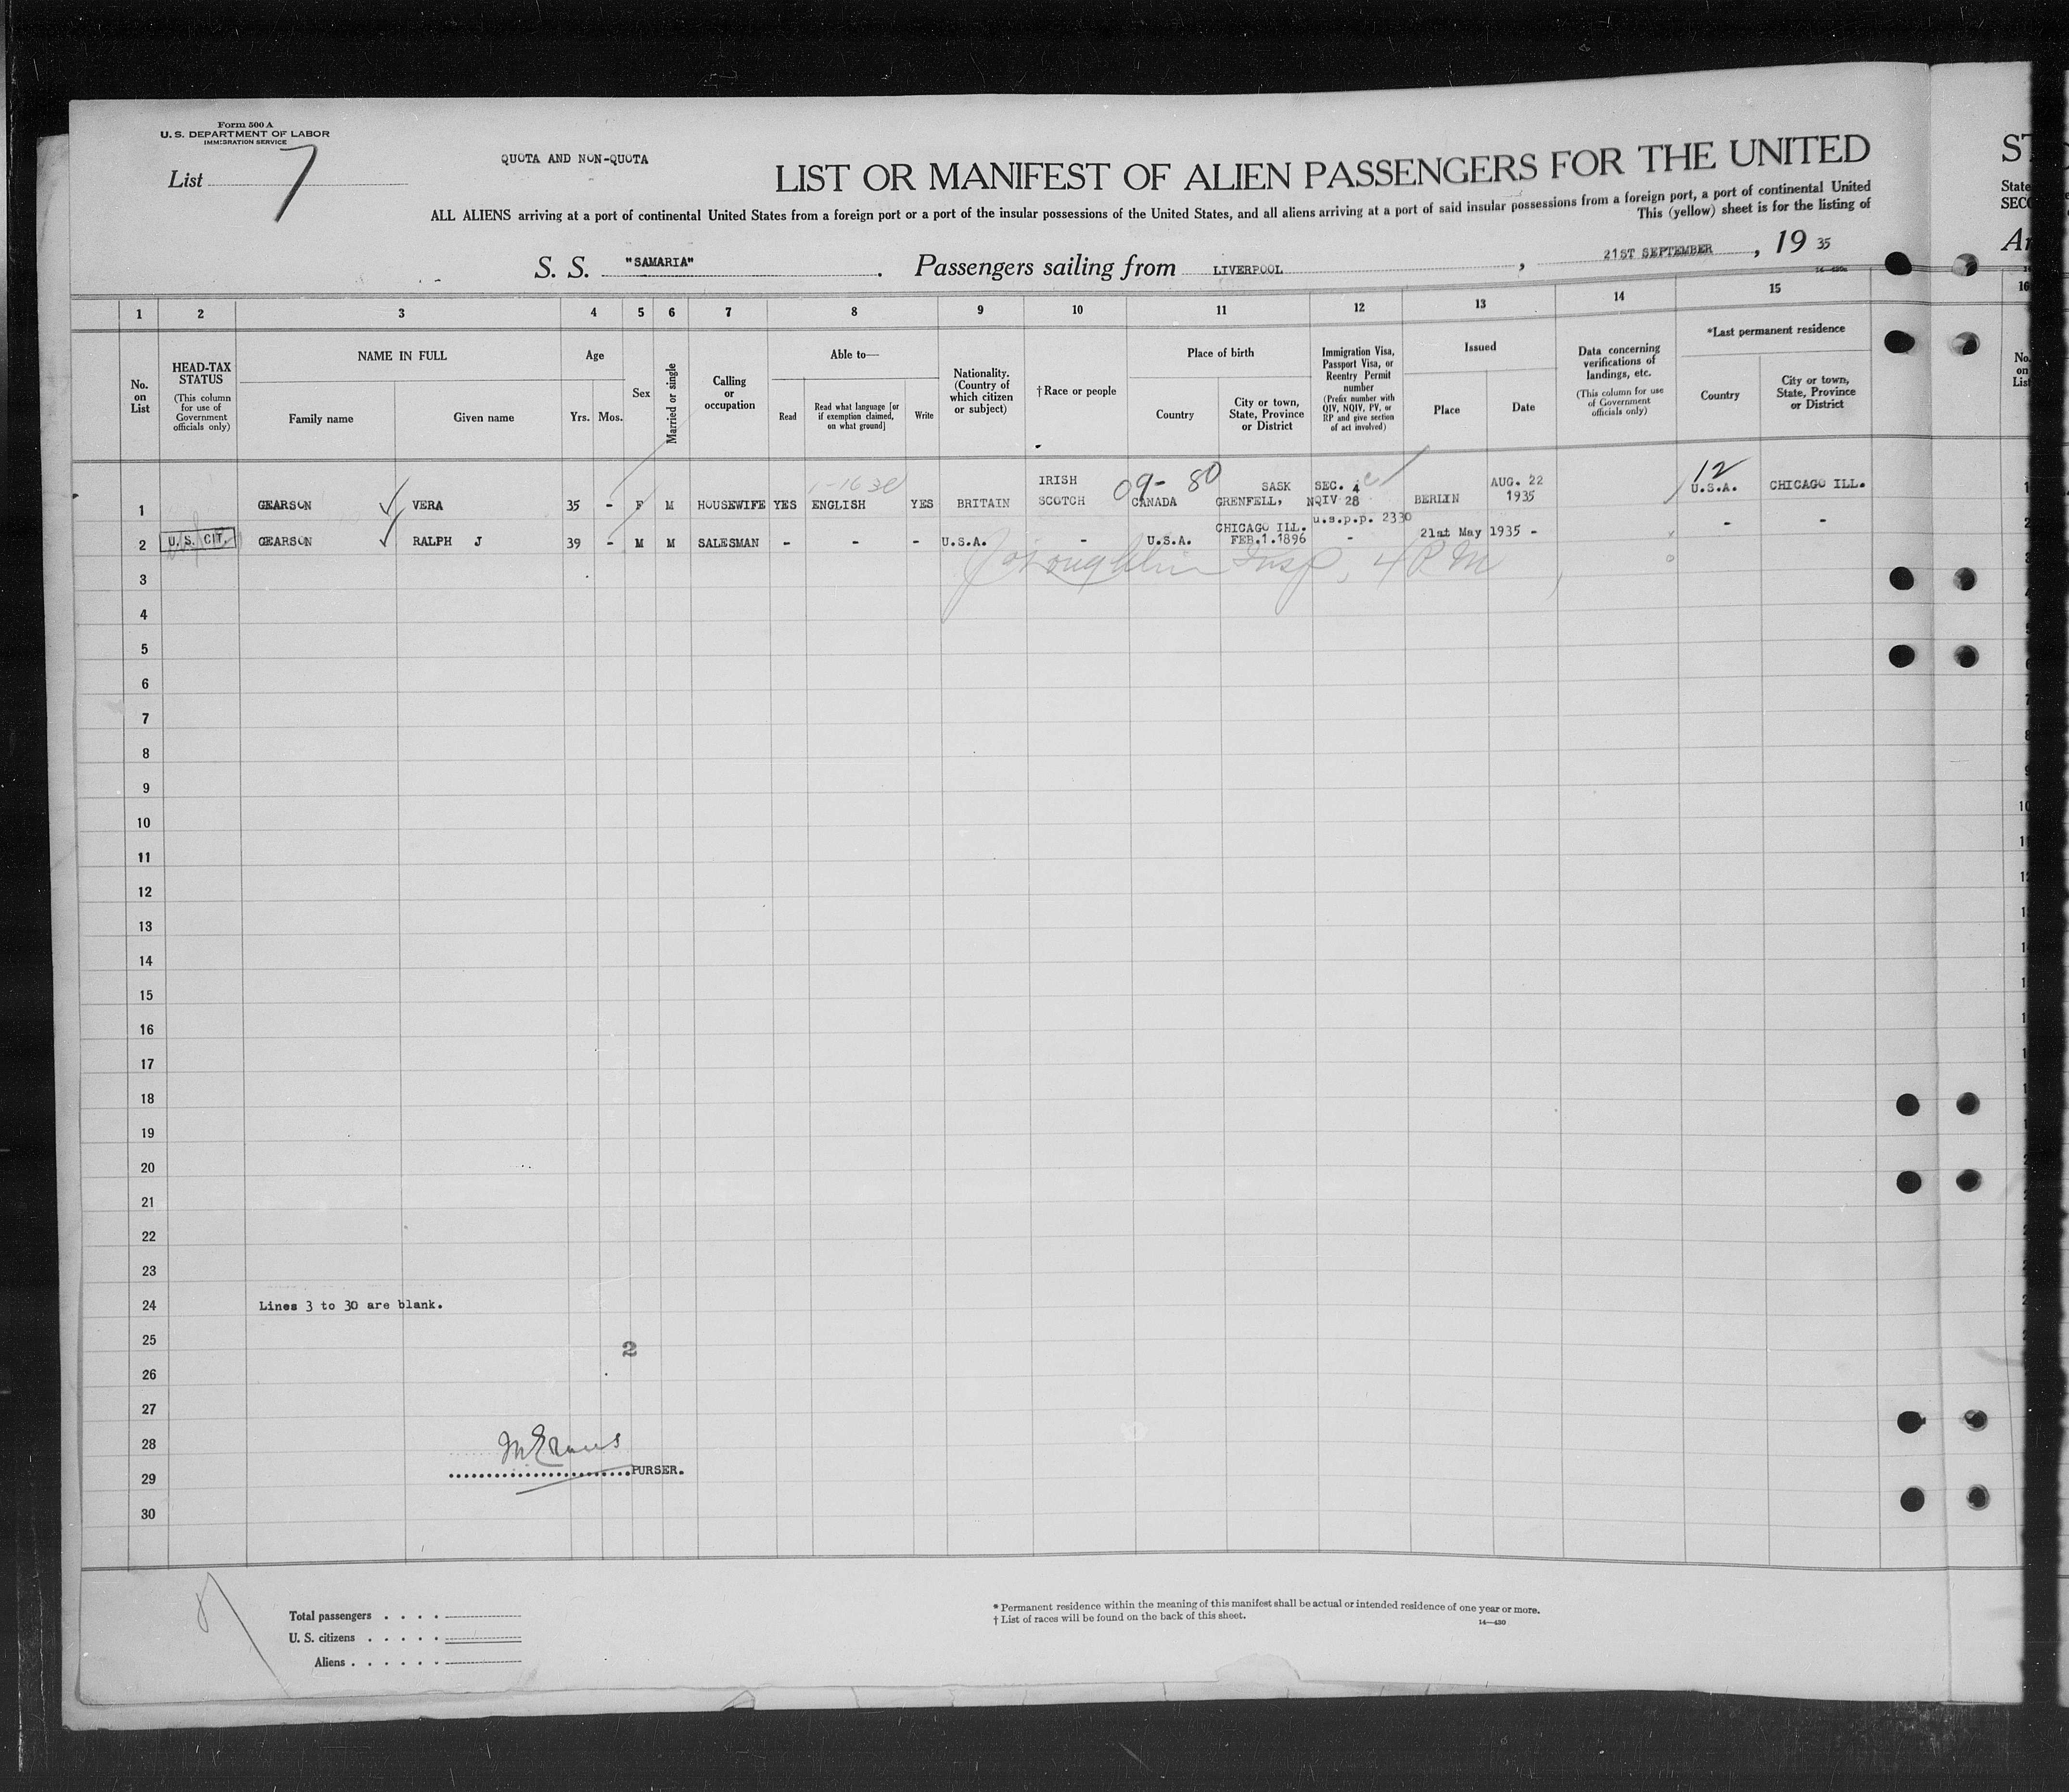 Form 500 A
U. S. DEPARTMENT OF LABOR
IMMIGRATION SERVICE
List 7
QUOTA AND NON-QUOTA
LIST OR MANIFEST OF ALIEN PASSENGERS FOR THE UNITED
ALL ALIENS arriving at a port of continental United States from a foreign port or a port of the insular possessions of the United States, and all aliens arriving at a port of said insular possessions from a foreign port, a port of continental United
This (yellow) sheet is for the listing of
S. S. "SAMARIA". Passengers sailing from LIVERPOOL, 21ST SEPTEMBER, 19 35
14—430a
ST
State
SEC
Ar
1 2 3 4 5 6 7 8 9 10 11 12 13 14 15 16
No. on List
HEAD-TAX STATUS
(This column for use of Government officials only)
NAME IN FULL
Family name
Given name
Age
Yrs. Mos.
Sex
Married or single
Calling or occupation
Able to—
Read
Read what language [or if exemption claimed, on what ground]
Write
Nationality. (Country of which citizen or subject)
† Race or people
Place of birth
Country
City or town, State, Province or District
Immigration Visa, Passport Visa, or Reentry Permit number
(Prefix number with QIV, NQIV, PV, or RP and give section of act involved)
Issued
Place
Date
Data concerning verifications of landings, etc.
(This column for use of Government officials only)
*Last permanent residence
Country
City or town, State, Province or District
No. on List
1-1630 09- 80 12
IRISH SASK SEC. 4 c AUG. 22
1 GEARSON VERA 35 - F M HOUSEWIFE YES ENGLISH YES BRITAIN SCOTCH CANADA GRENFELL, NQIV 28 BERLIN 1935 U.S.A. CHICAGO ILL.
CHICAGO ILL. u.s.p.p. 2330
2 U. S. CIT. GEARSON RALPH J 39 - M M SALESMAN - - - U.S.A. - U.S.A. FEB.1.1896 - 21st May 1935 - - -
Insp, 4 PM
3
4
5
6
7
8
9
10
11
12
13
14
15
16
17
18
19
20
21
22
23
24 Lines 3 to 30 are blank.
25
2
26
27
28
M Evans
29 PURSER.
30
Total passengers
U. S. citizens
Aliens
* Permanent residence within the meaning of this manifest shall be actual or intended residence of one year or more.
† List of races will be found on the back of this sheet.
14—430